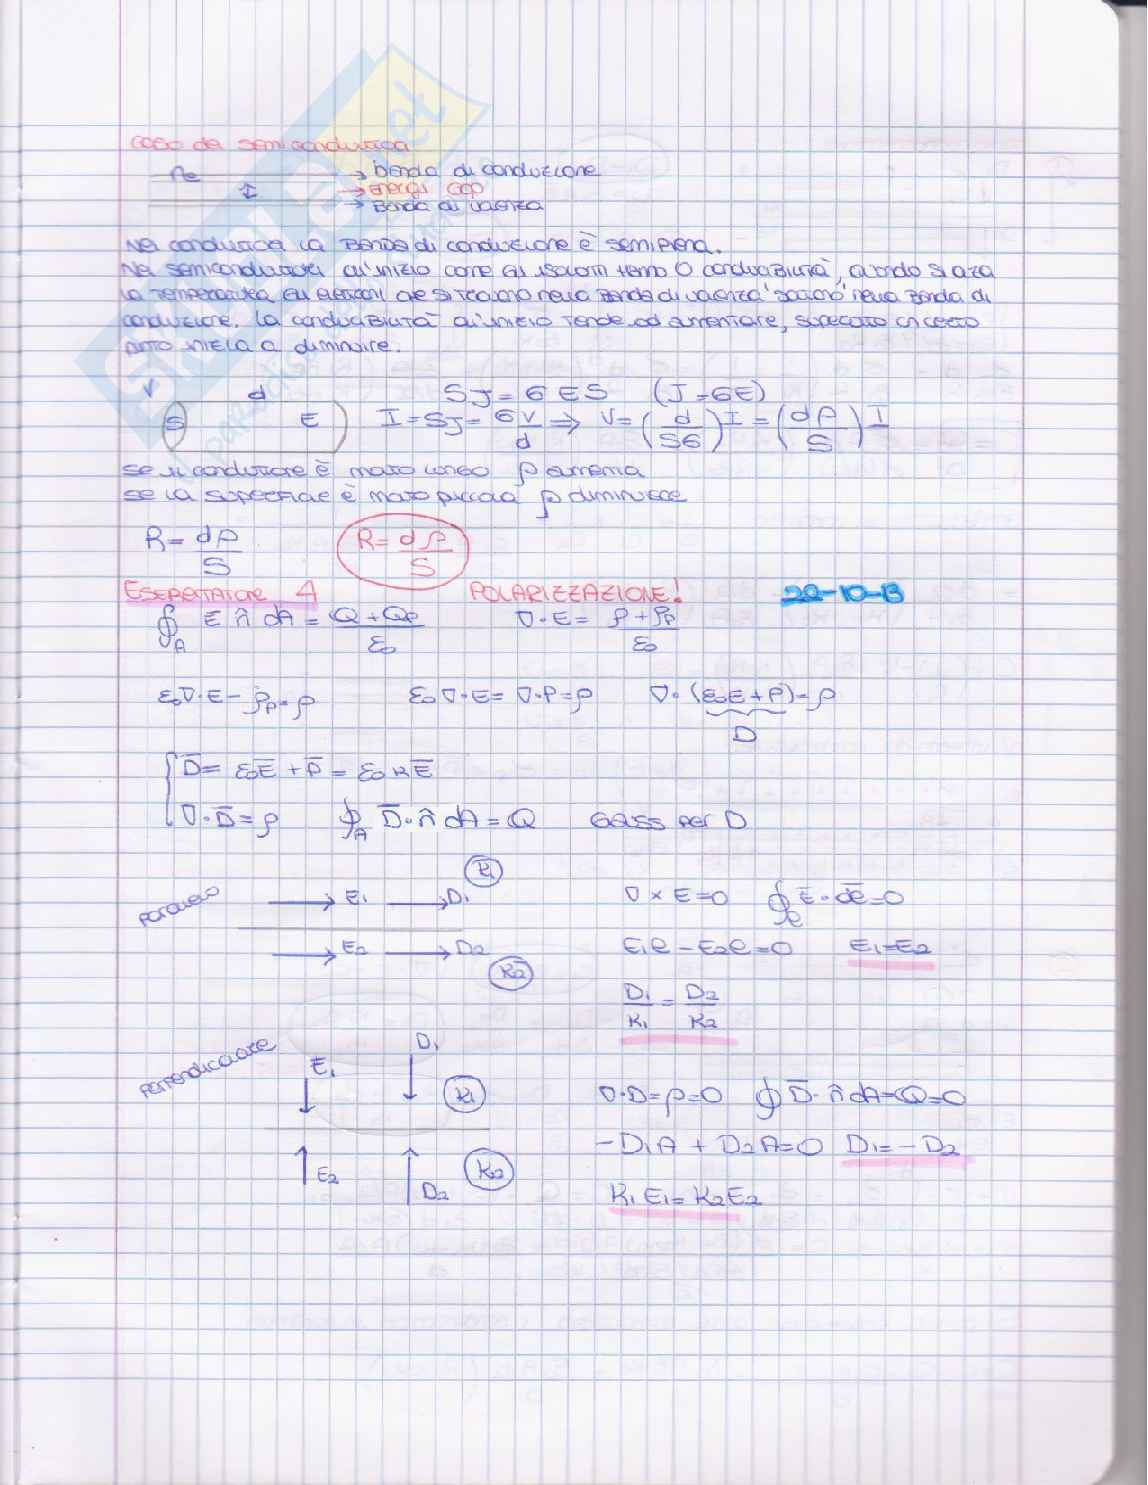 caso dei semiconduttori
ne → banda di conduzione
→ energy GAP
→ Banda di valenza
Nei conduttori la Banda di conduzione è semipiena.
Nei semiconduttori all'inizio come gli isolanti hanno 0 conducibilità, quando si alza
la temperatura gli elettroni che si trovano nella Banda di valenza "saltano" nella Banda di
conduzione. la conducibilità all'inizio tende ad aumentare, superato un certo
punto inizia a diminuire.
V d S E
SJ = σES (J = σE)
I = SJ = σ V/d ⇒ V = (d/Sσ) I = (dρ/S) I
se il conduttore è molto lungo ρ aumenta
se la superficie è molto piccola ρ diminuisce
R = dρ/S R = dρ/S
Esercitazione 4 POLARIZZAZIONE!
∮_A E n̂ dA = (Q + Qp)/ε₀ ∇·E = (ρ + ρp)/ε₀
ε₀∇·E - ρp = ρ ε₀∇·E = ∇·P = ρ ∇·(ε₀E + P) = ρ
D
D̄ = ε₀Ē + P̄ = ε₀kĒ
∇·D̄ = ρ ∮_A D̄·n̂ dA = Q Gauss per D
parallelo
→ E₁ → D₁ K₁
→ E₂ → D₂ K₂
∇ × E = 0 ∮_ℓ Ē·dℓ̄ = 0
E₁ℓ - E₂ℓ = 0 E₁ = E₂
D₁/K₁ = D₂/K₂
perpendicolare
E₁ D₁ K₁
E₂ D₂ K₂
∇·D = ρ = 0 ∮ D̄·n̂ dA = Q = 0
-D₁A + D₂A = 0 D₁ = -D₂
K₁E₁ = K₂E₂